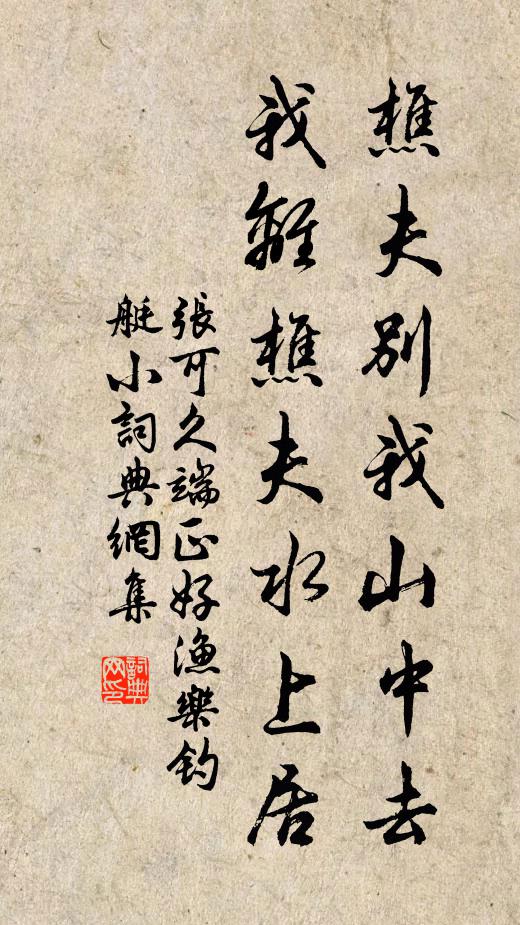 樵夫別我山中去
我離樵夫水上居
張可久端正好漁樂釣
艇小詞典網集
詞典網印